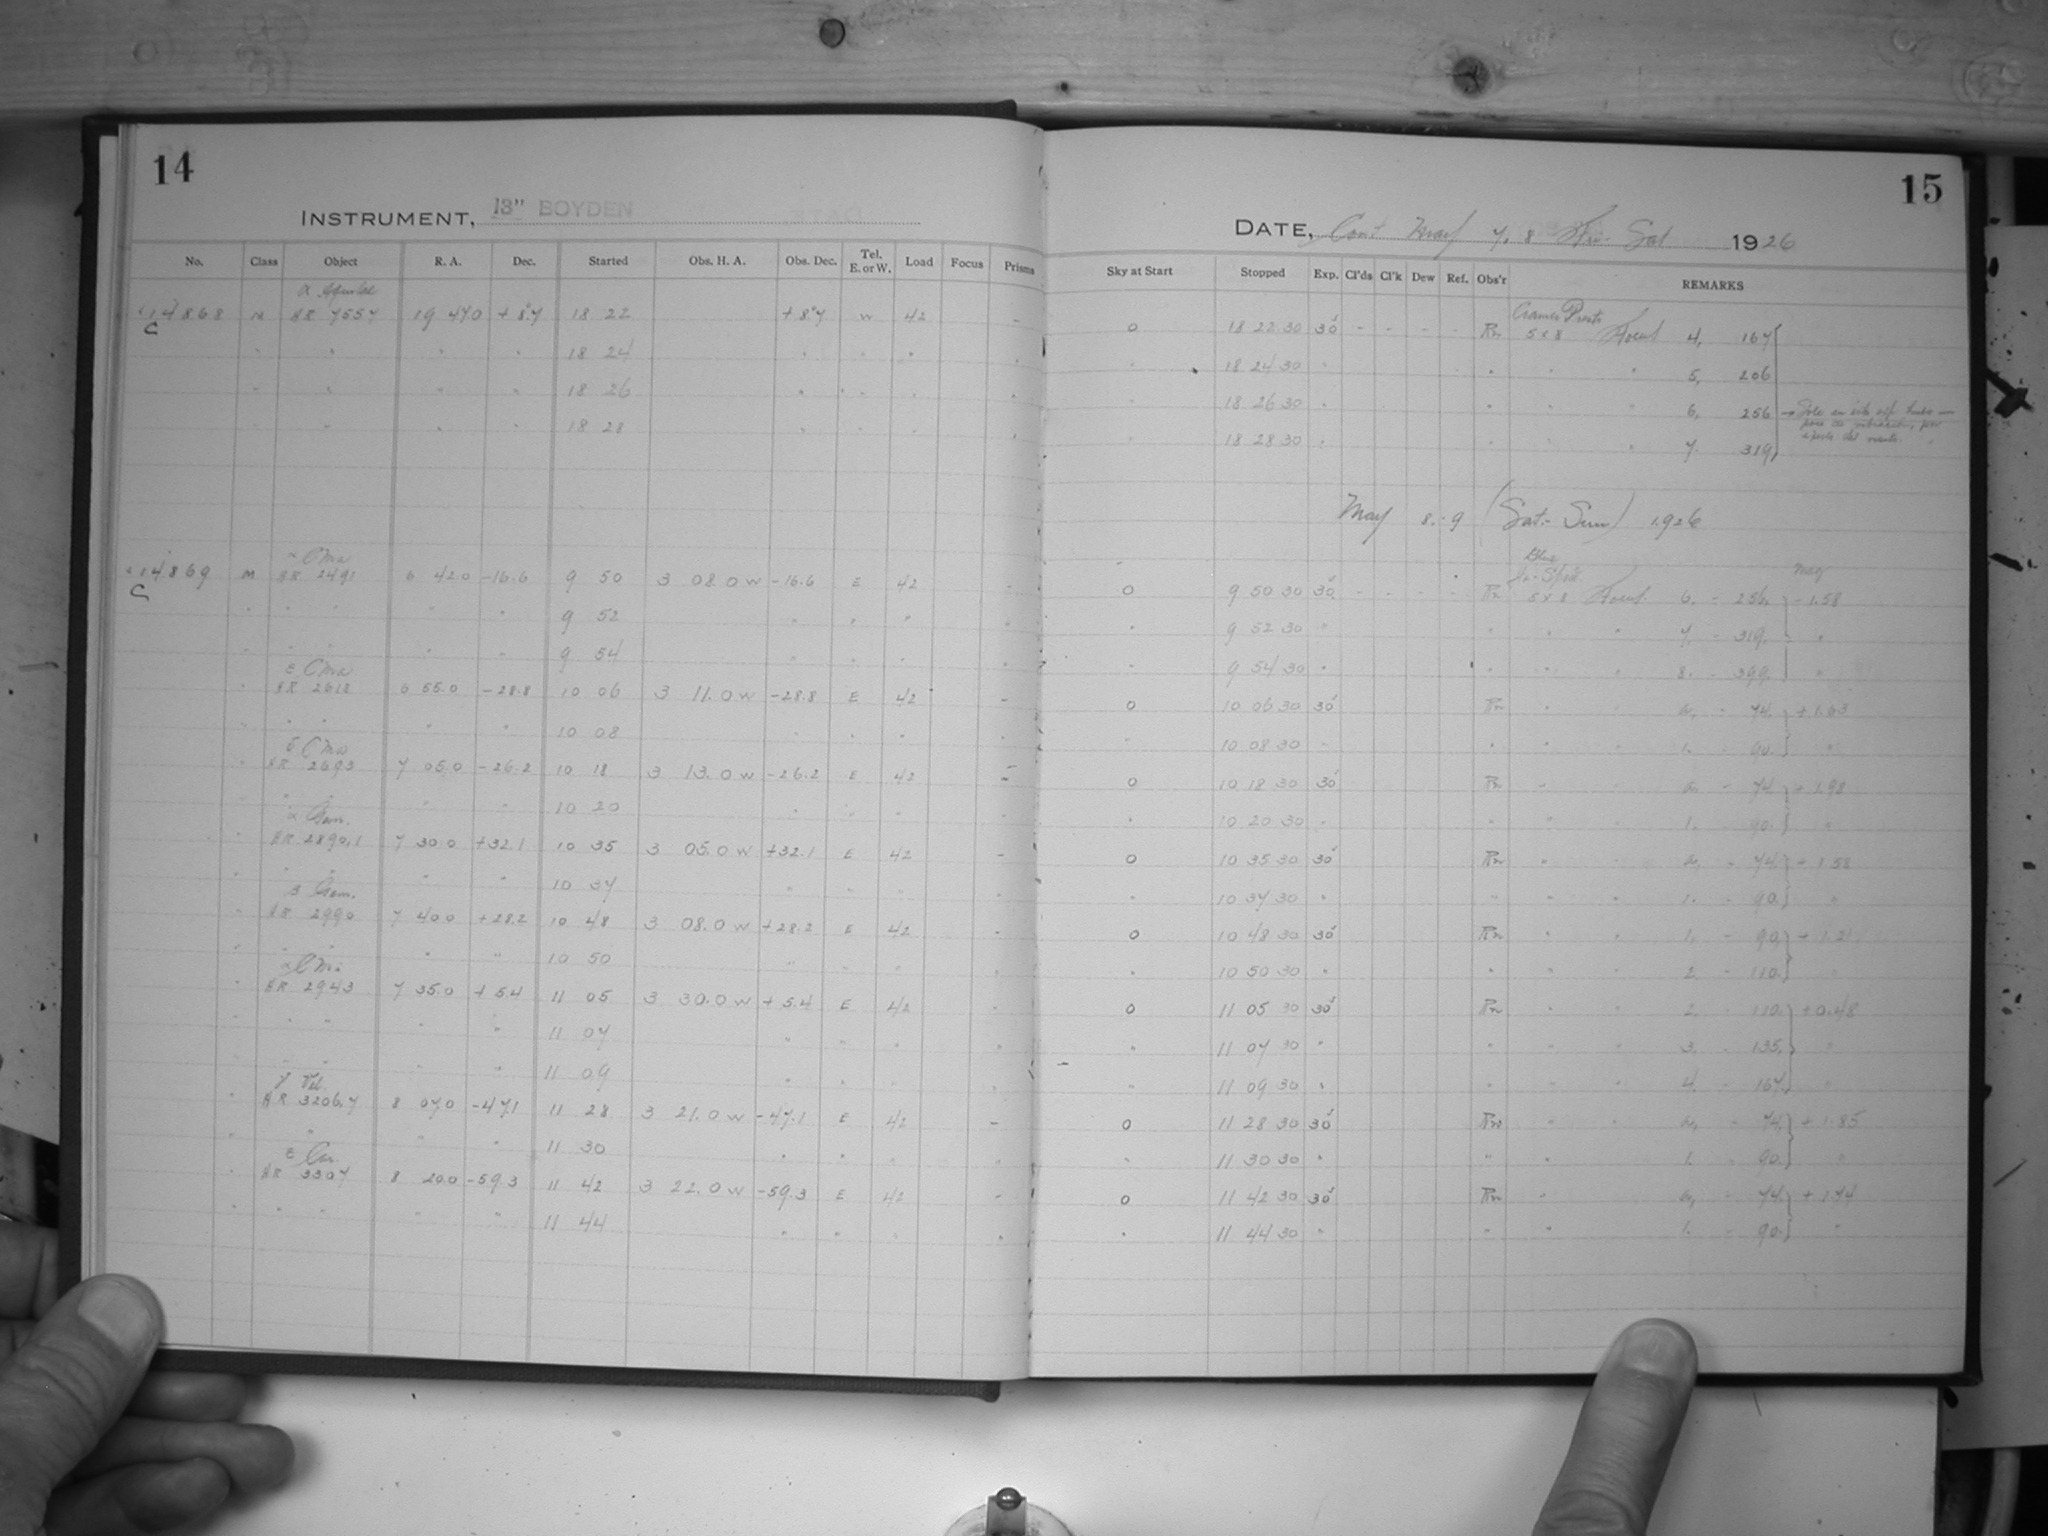 14
INSTRUMENT, 13" BOYDEN
No. Class Object R. A. Dec. Started Obs. H. A. Obs. Dec. Tel. E. or W. Load Focus Prisms
α Aquilae
14868 M HR 7557 19 47.0 +8.7 18 22 +8.7 W 42 -
C
" " " " 18 24 " " " "
" " " " 18 26 " " " "
" " " " 18 28 " " " "
α CMa
14869 M HR 2491 6 42.0 -16.6 9 50 3 08.0 W -16.6 E 42 -
C
" " " " 9 52 " " " "
" " " " 9 54 " " " "
ε CMa
" HR 2618 6 55.0 -28.8 10 06 3 11.0 W -28.8 E 42 -
" " " " " 10 08 " " " "
δ CMa
" HR 2693 7 05.0 -26.2 10 18 3 13.0 W -26.2 E 42 -
" " " " " 10 20 " " " "
α Gem.
" HR 2890.1 7 30.0 +32.1 10 35 3 05.0 W +32.1 E 42 -
" " " " " 10 37 " " " "
β Gem.
" HR 2990 7 40.0 +28.2 10 48 3 08.0 W +28.2 E 42 -
" " " " " 10 50 " " " "
α CMi
" HR 2943 7 35.0 +5.4 11 05 3 30.0 W +5.4 E 42 -
" " " " " 11 07 " " " "
" " " 11 09 " " " "
γ Vel.
" HR 3206.7 8 07.0 -47.1 11 28 3 21.0 W -47.1 E 42 -
" " " " 11 30 " " " "
ε Car.
" HR 3307 8 20.0 -59.3 11 42 3 22.0 W -59.3 E 42 -
" " " " " 11 44 " " " "
15
DATE, Cont May 7, 8 Fri. Sat 1926
Sky at Start Stopped Exp. Cl'ds Cl'k Dew Ref. Obs'r REMARKS
Cramer Presto
0 18 22 30 30s - - - - Rn 5x8 Focus 4, 167
" 18 24 30 " " " " 5, 206
" 18 26 30 " " " " 6, 256
" 18 28 30 " " " 7. 319
May 8.-9 (Sat.- Sun) 1926
mag
0 9 50 30 30s - - - - Rn 5x8 Focus 6. - 256. -1.58
" 9 52 30 " " " " 7. - 319. "
" 9 54 30 " " " " 8. - 399. "
0 10 06 30 30s Rn " " 0. - 74. +1.63
" 10 08 30 " " " " 1. - 90. "
0 10 18 30 30s Rn " " 0. - 74. +1.98
" 10 20 30 " " " " 1. - 90. "
0 10 35 30 30s Rn " " 0. - 74. +1.58
" 10 37 30 " " " " 1. - 90. "
0 10 48 30 30s Rn " " 1. - 90. +1.21
" 10 50 30 " " " " 2. - 110. "
0 11 05 30 30s Rn " " 2. - 110. +0.48
" 11 07 30 " " " " 3. - 135. "
" 11 09 30 " " " " 4. - 167. "
0 11 28 30 30s Rn " " 0. - 74. +1.85
" 11 30 30 " " " " 1. - 90. "
0 11 42 30 30s Rn " " 0. - 74. +1.74
" 11 44 30 " " " 1. - 90. "